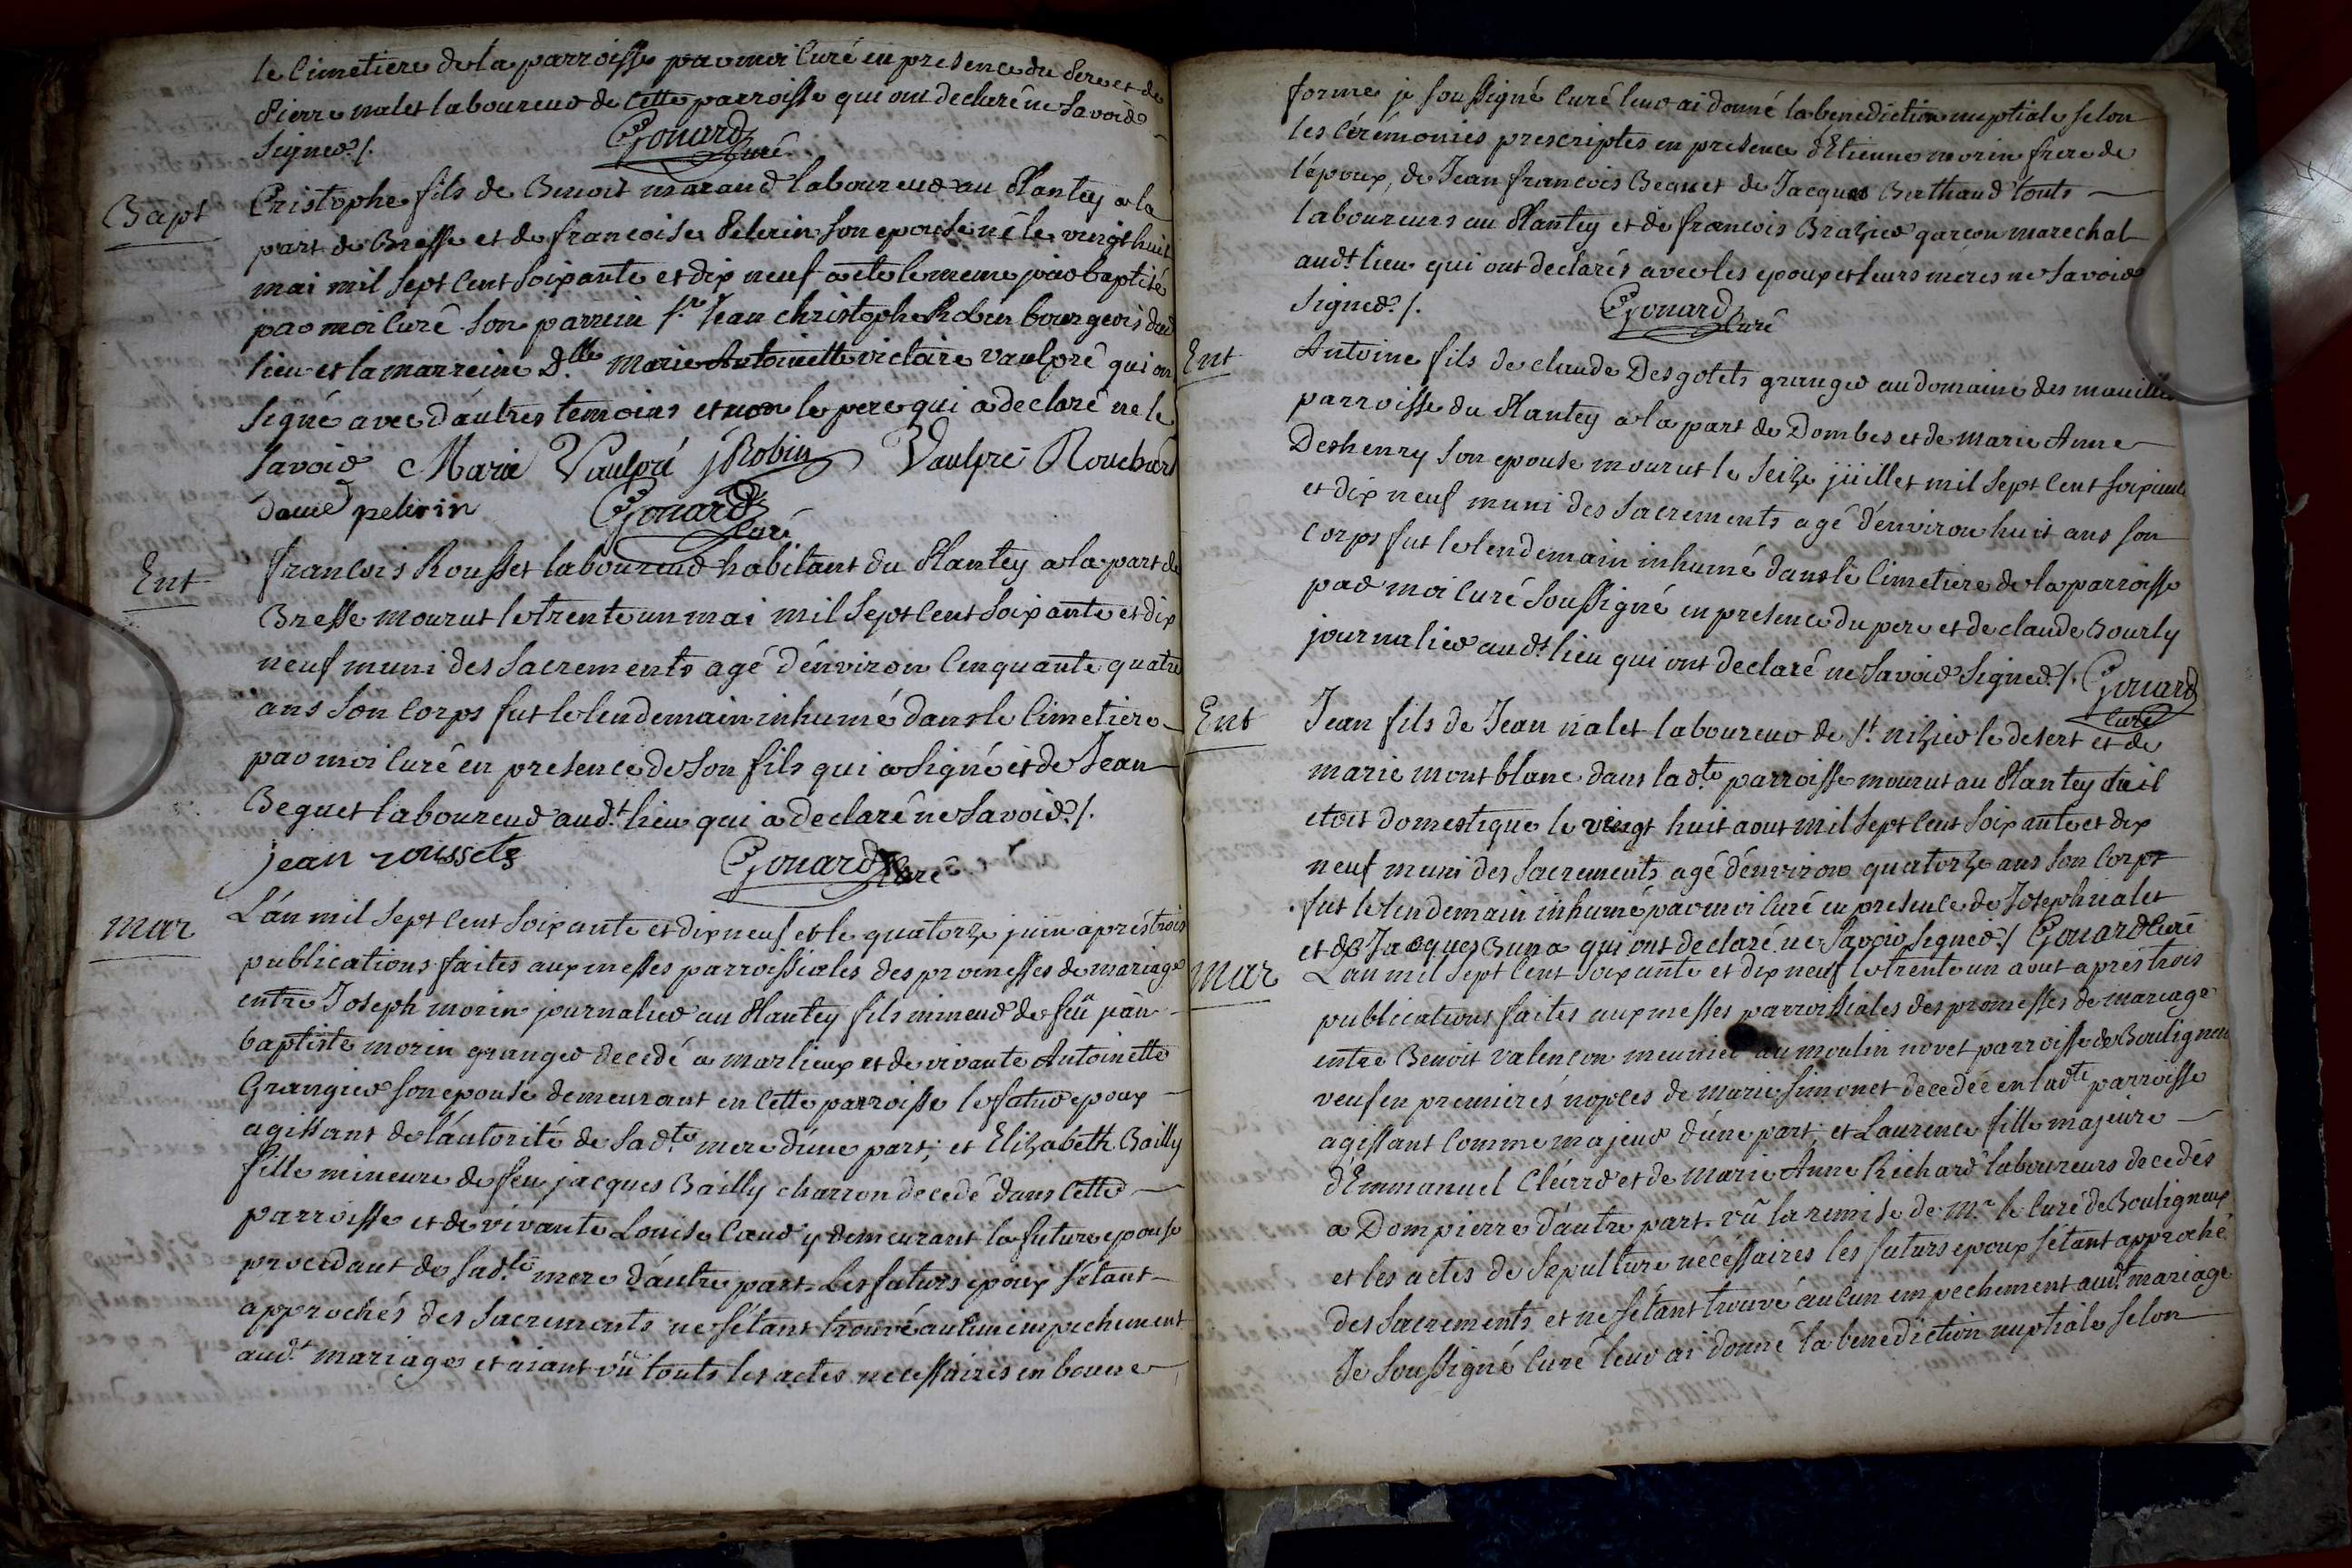 le Cimetiere de la parroisse par moi Curé en presence du Pere et de
Pierre nalet laboureur de Cette parroisse qui ont declaré ne Savoir
Signer ./.
Gonard Curé
Bapt
Cristophe fils de Benoit maraud laboureur au Plantey a la
part de Bresse et de francoise Pelerin Son epouse né le vingt huit
mai mil Sept Cent Soixante et dix neuf a eté le meme jour baptisé
par moi Curé Son parrein Sr Jean christophe Robin bourgeois dud
lieu et la marreine Dlle Marie Antoinette victoire vaulpré qui ont
Signé avec d'autres temoins et non le pere qui a declaré ne le
Savoir Marie Vaulpré J Robin Vaulpré Rouchard
david pelerin Gonard Curé
Ent
francois Rousset laboureur habitant du Plantey a la part de
Bresse mourut le trente un mai mil Sept Cent Soixante et dix
neuf muni des Sacrements agé d'environ Cinquante quatre
ans Son Corps fut le lendemain inhumé dans le Cimetiere
par moi Curé en presence de Son fils qui a Signé et de Jean
Beguet laboureur audt lieu qui a declaré ne Savoir ./.
jean roussets Gonard Curé
mar
L'an mil Sept Cent Soixante et dix neuf et le quatorze juin aprés trois
publications faites aux messes parroissiales des promesses de mariage
entre Joseph morin journalier au Plantey fils mineur de feu jean
baptiste morin granger decedé a marlieux et de vivante Antoinette
Grangier Son epouse demeurant en Cette parroisse le futur epoux
agissant de l'autorité de Sadte mere d'une part, et Elizabeth Bailly
fille mineure de feu jacques Bailly charron decedé dans Cette
parroisse et de vivante Louise Caud y demeurant la future epouse
procedant de Sadte mere d'autre part. Les futurs epoux S'étant
approchés des Sacrements ne S'étant trouvé aucun impechement
audt mariage et aiant vû touts les actes necessaires en bonne
forme je Soussigné Curé leur ai donné la benediction nuptiale Selon
les Cérémonies prescriptes en presence d'Etienne morin frere de
l'époux, de Jean francois Beguet de Jacques Berthaud touts
laboureurs au Plantey et de francois Brazier garcon marechal
audt lieu qui ont declarés avec les epoux et leurs meres ne Savoir
Signer ./. Gonard Curé
Ent
Antoine fils de claude Desgolets granger au domaine des mouilles
parroisse du Plantey a la part de Dombes et de marie Anne
Deshenry Son epouse mourut le Seize juillet mil Sept Cent Soixante
et dix neuf muni des Sacrements agé d'environ huit ans Son
Corps fut le lendemain inhumé dans le Cimetiere de la parroisse
par moi Curé Soussigné en presence du pere et de claude Bourly
journalier audt lieu qui ont declaré ne Savoir Signer ./. Gonard
Curé
Ent
Jean fils de Jean nalet laboureur de St nizier le desert et de
marie montblanc dans ladte parroisse mourut au Plantey ou il
etoit domestique le vingt huit aout mil Sept Cent Soixante et dix
neuf muni des Sacrements agé d'environ quatorze ans Son Corps
fut le lendemain inhumé par moi Curé en presence de Joseph nalet
et de Jacques Buna qui ont declaré ne Savoir Signer ./ Gonard Curé
mar
L'an mil Sept Cent Soixante et dix neuf le trente un aout apres trois
publications faites aux messes parroissiales des promesses de mariage
entre Benoit valencon meunier au moulin novet parroisse de Bouligneux
veuf en premierés nopces de marie Simonet decedée en ladte parroisse
agissant Comme majeur d'une part, et Laurence fille majeure
d'Emmanuel Cléard et de marie Anne Richard laboureurs decedés
a Dompierre d'autre part. vû la remise de Mr le Curé de Bouligneux
et les actes de Sepulture nécéssaires les futurs epoux S'étant approché
des Sacrements et ne S'étant trouvé aucun empechement audt mariage
Je Soussigné Curé leur ai donné la benediction nuptiale Selon